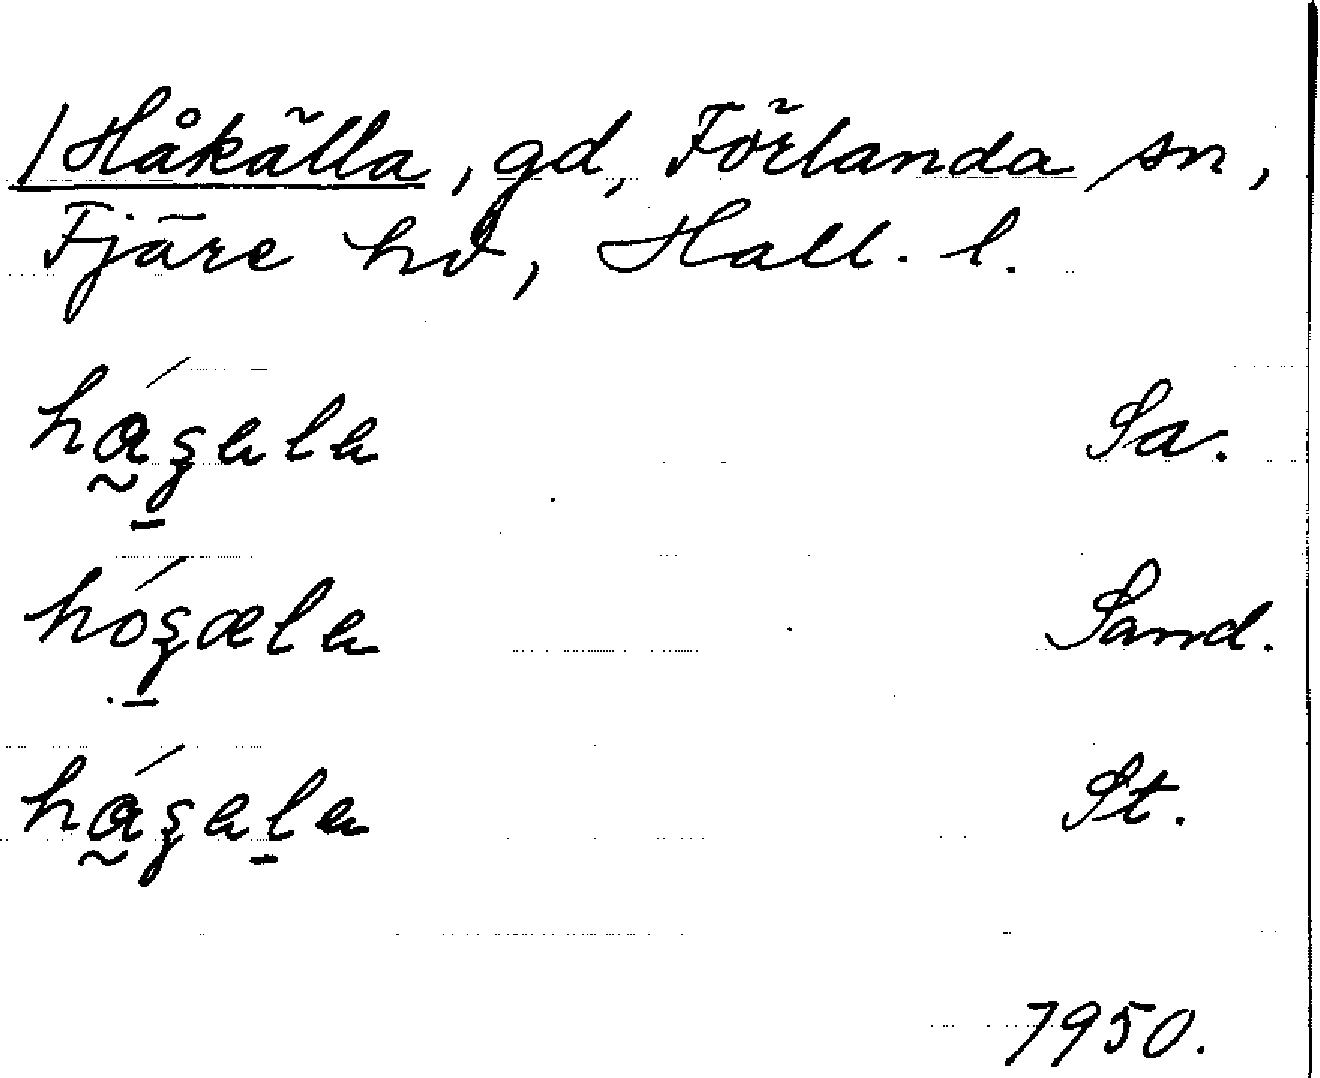 /Håkälla, gd, Förlanda sn,
Fjäre hd, Hall. l.
hágala Sa.
hógæla Sand.
hágala St.
1950.